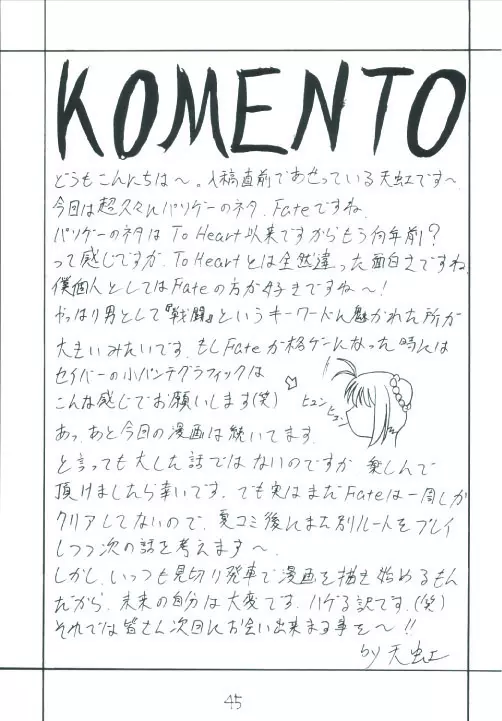 KOMENTO
どうもこんにちは〜。入稿直前であせっている天虹です〜
今回は超久々にパソゲーのネタ、Fateですね。
パソゲーのネタは To Heart以来ですからもう何年前?
って感じですが、To Heartとは全然違った面白さですね
僕個人としてはFateの方が好きですね〜!
やっぱり男として『戦闘』というキーワードに魅かれた所が
大きいみたいです。もしFateが格ゲーになった時には
セイバーの小パンチグラフィックは
こんな感じでお願いします(笑)
ヒュン
ヒュン
あっ、あと今回の漫画は続いてます。
と言っても大した話ではないのですが 楽しんで
頂けましたら幸いです。でも実はまだFateは一周しか
クリアしてないので、夏コミ後にまた別ルートをプレイ
しつつ次の話を考えます〜。
しかし、いっつも見切り発車で漫画を描き始めるもん
だから、未来の自分は大変です。ハゲる訳です。(笑)
それでは皆さん次回にお会い出来ます事を〜!!
by 天虹
45